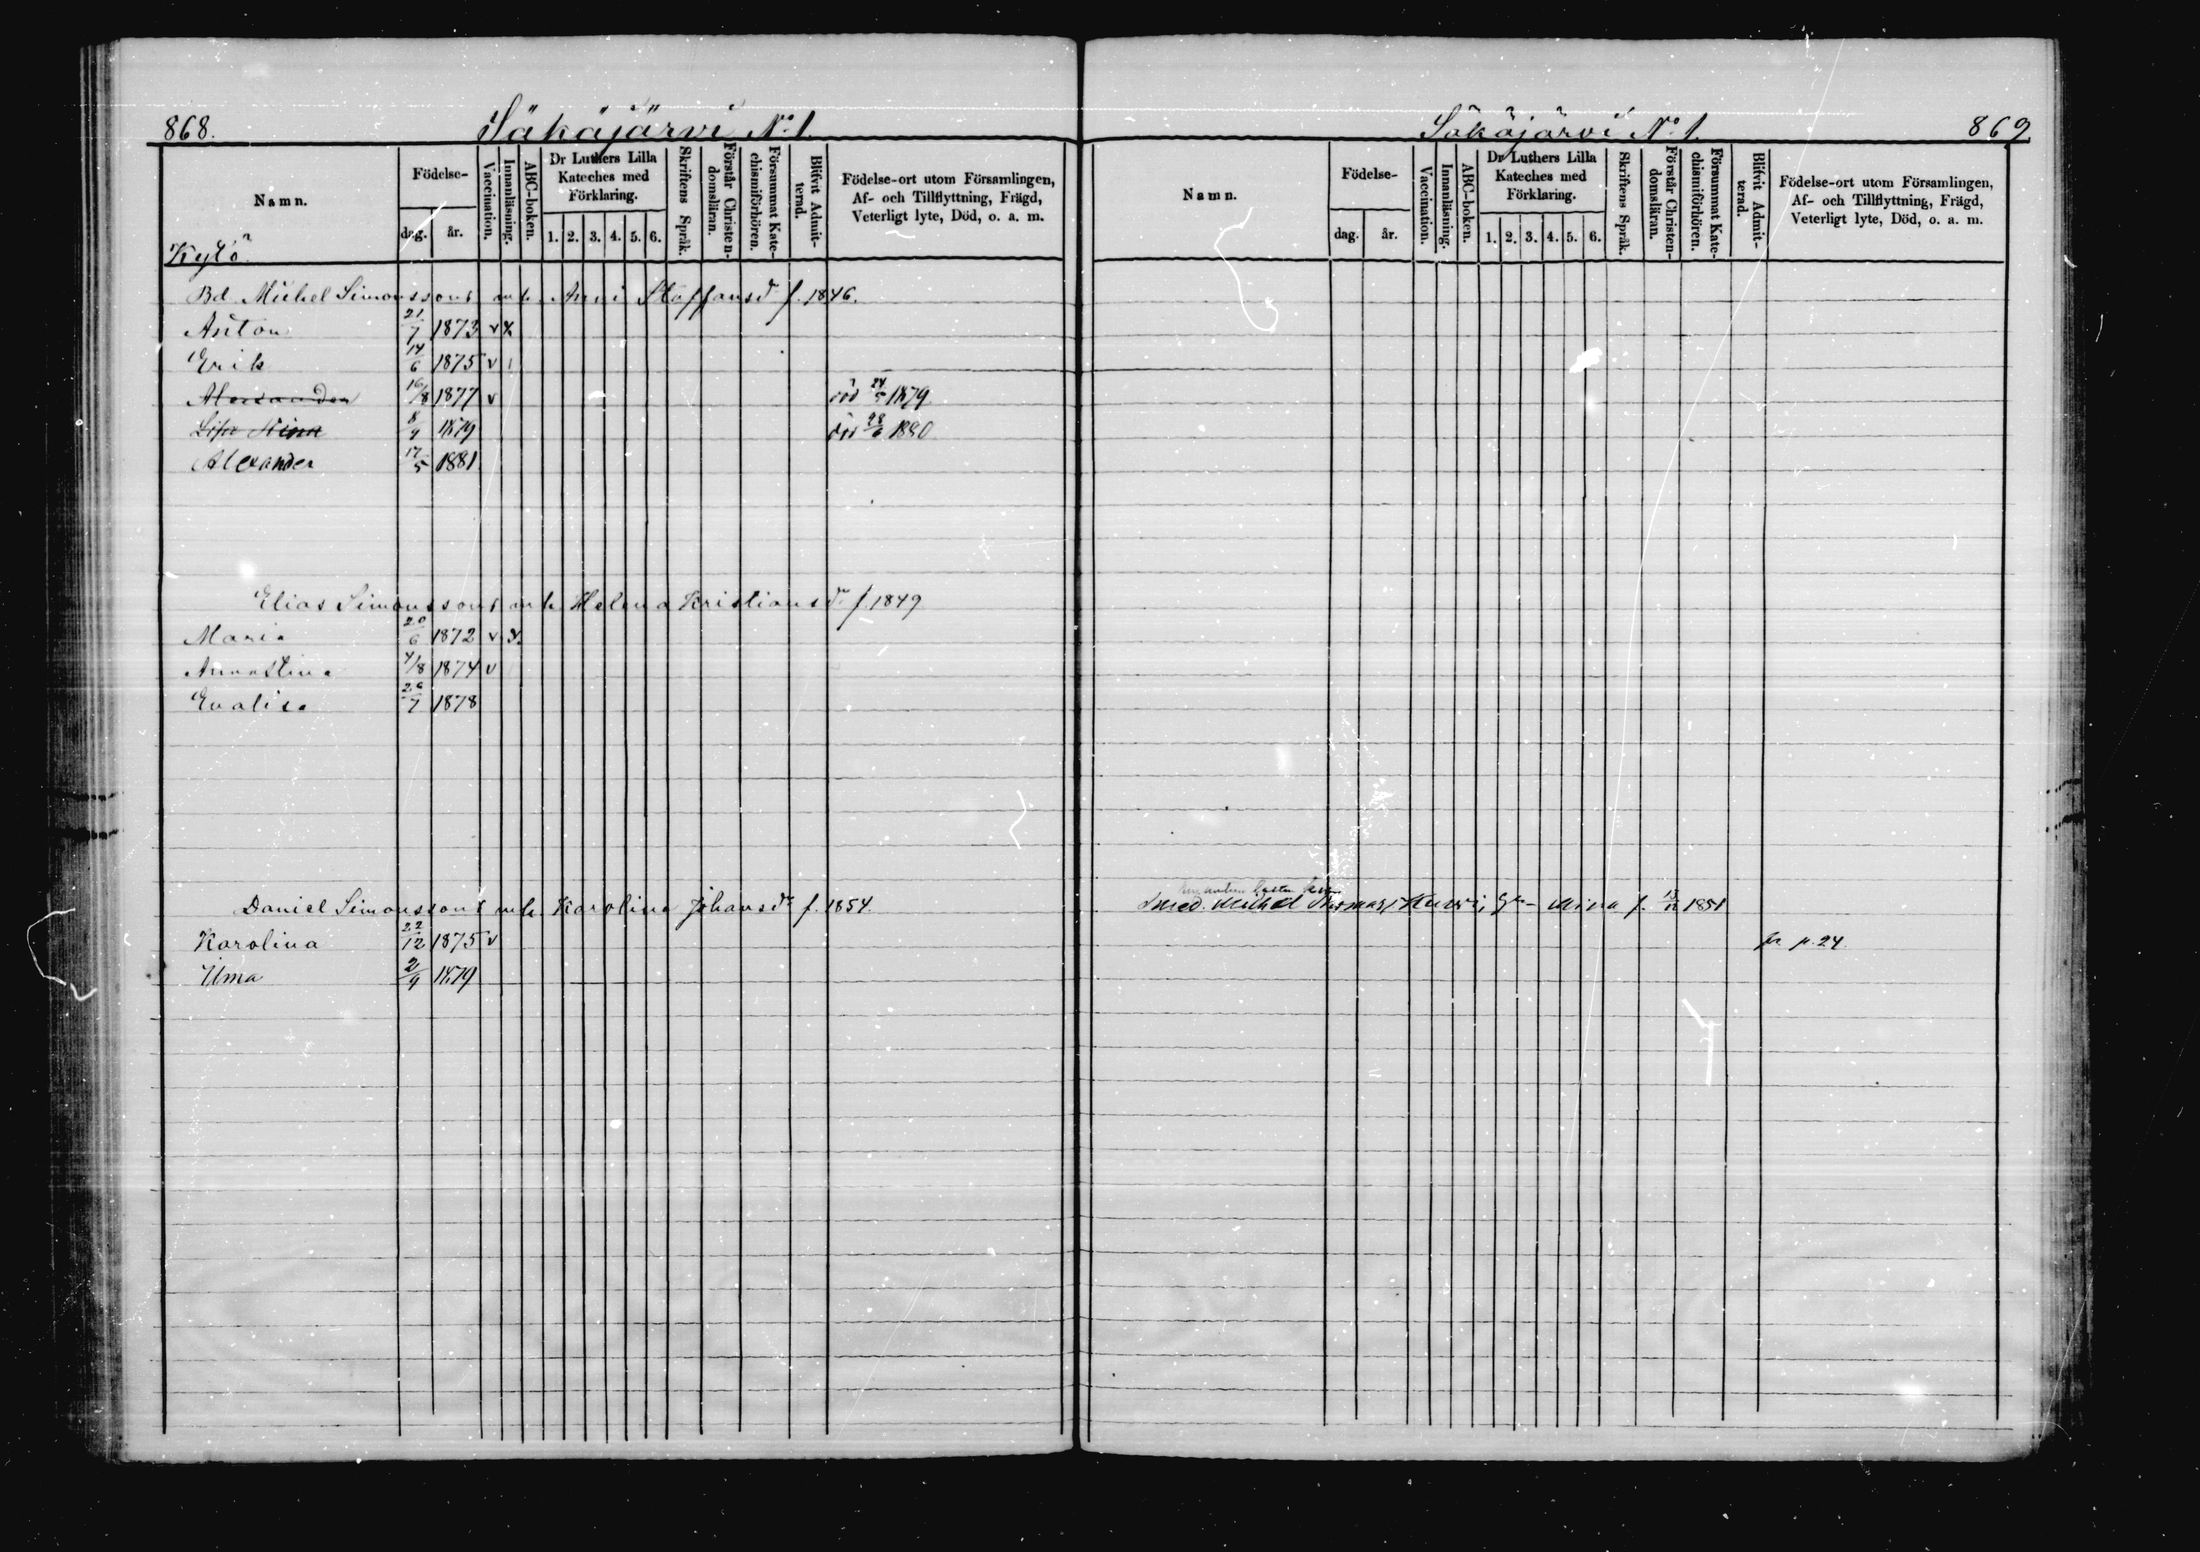 868. Säkäjärvi No 1.
Namn. Födelse- dag. år. Vaccination. Innanläsning. ABC-boken. Dr Luthers Lilla Kateches med Förklaring. 1. 2. 3. 4. 5. 6. Skriftens Språk. Förstår Christendomsläran. Försummat Katechismiförhören. Blifvit Admitterad. Födelse-ort utom Församlingen, Af- och Tillflyttning, Frägd, Veterligt lyte, Död, o. a. m.
Kytö
Bd. Michel Simonssons mh. Anni Staffansdr f. 1846.
Anton 21/7 1873 v x
Erik 14/6 1875 v 1
Alexander 16/8 1877 v död 24/5 1879
Lisa Stina 8/9 1879 död 28/6 1880
Alexander 17/5 1881
Elias Simonssons mh. Helena Kristiansdr f. 1849
Maria 20/6 1872 v x
Anna Stina 4/8 1874 v
Evalisa 26/7 1878
Daniel Simonssons mh. Karolina Johansdr f. 1854.
Karolina 22/12 1875 v
Ilma 2/9 1879
Säkäjärvi No 1. 869
Namn. Födelse- dag. år. Vaccination. Innanläsning. ABC-boken. Dr Luthers Lilla Kateches med Förklaring. 1. 2. 3. 4. 5. 6. Skriftens Språk. Förstår Christendomsläran. Försummat Katechismiförhören. Blifvit Admitterad. Födelse-ort utom Församlingen, Af- och Tillflyttning, Frägd, Veterligt lyte, Död, o. a. m.
Smed. Michel Mina f. 1851
p. 24.